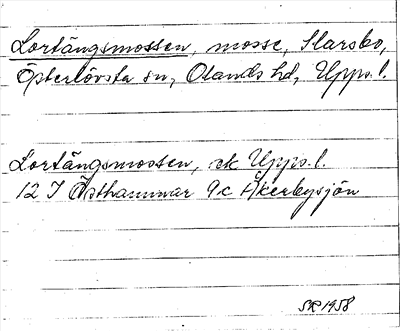 Lortängsmossen, mosse, Slarsbo,
Österlövsta sn, Olands hd, Upps. l.
Lortängsmossen, ek Upps. l.
12 I Östhammar 9c Åkerbysjön
SR 1958